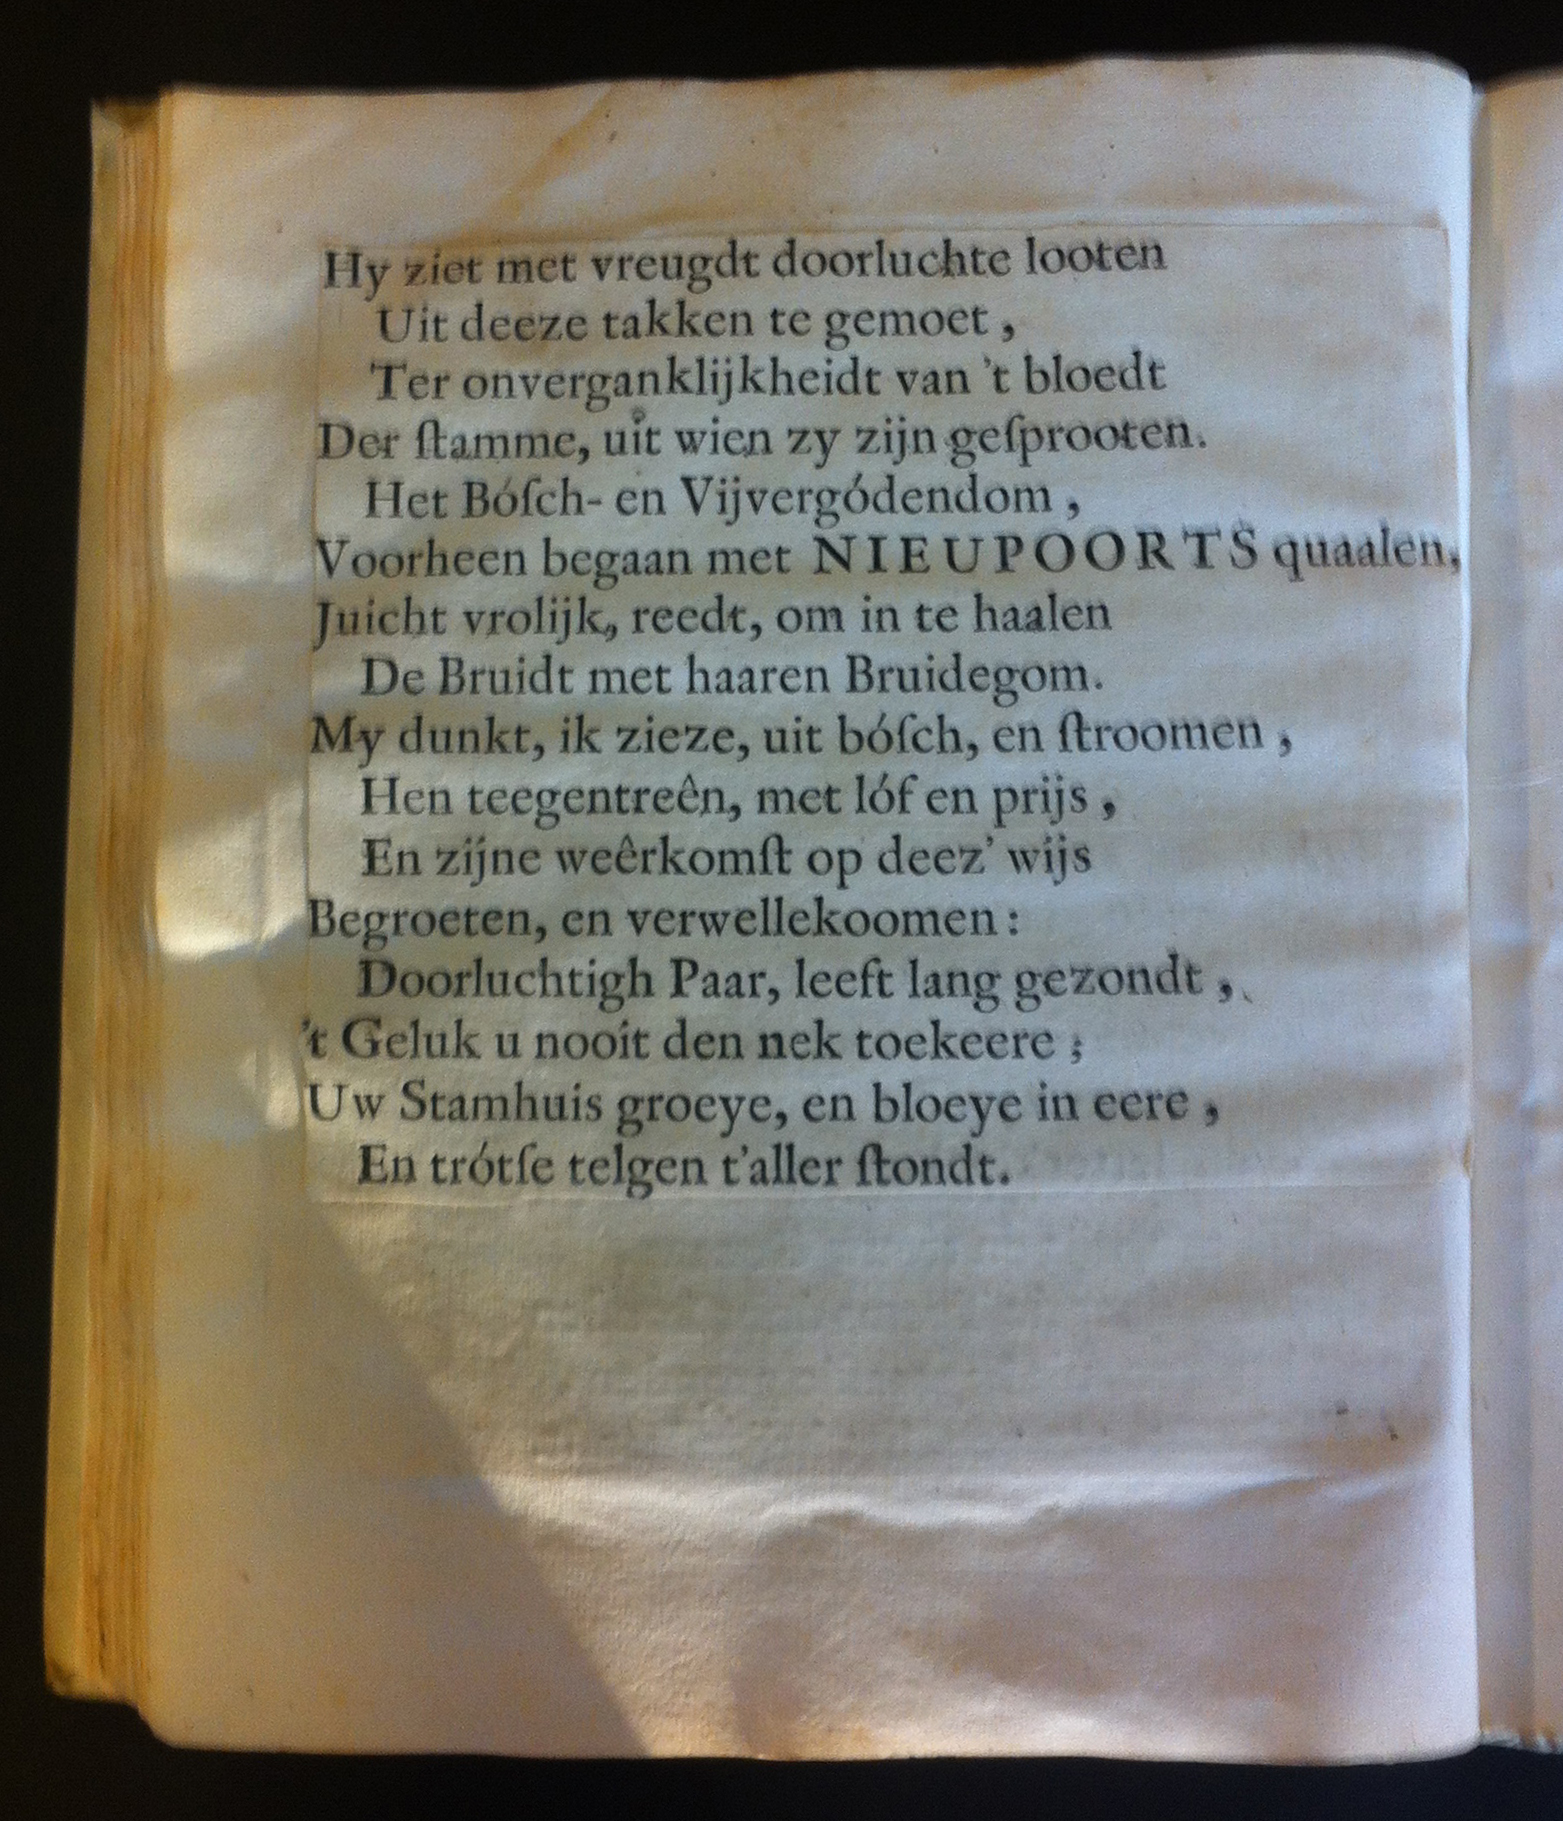 Hy ziet met vreugdt doorluchte looten
Uit deeze takken te gemoet,
Ter onverganklijkheidt van 't bloedt
Der ſtamme, uit wien zy zijn geſprooten.
Het Bóſch- en Vijvergódendom,
Voorheen begaan met NIEUPOORTS quaalen,
Juicht vrolijk, reedt, om in te haalen
De Bruidt met haaren Bruidegom.
My dunkt, ik zieze, uit bóſch, en ſtroomen,
Hen teegentreên, met lóf en prijs,
En zijne weêrkomſt op deez' wijs
Begroeten, en verwellekoomen:
Doorluchtigh Paar, leeft lang gezondt,
't Geluk u nooit den nek toekeere;
Uw Stamhuis groeye, en bloeye in eere,
En trótſe telgen t'aller ſtondt.